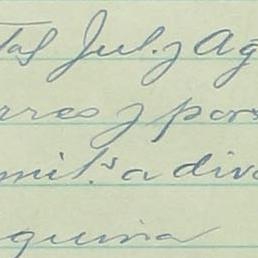 tas Jul. y Ag
rres y por
mil.s a div
quina